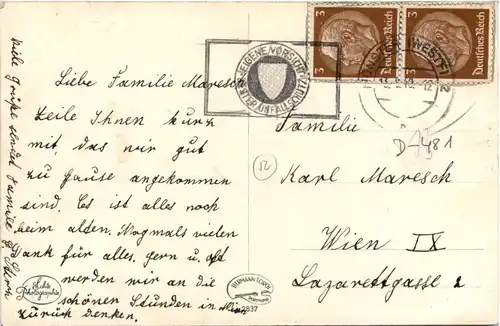 Liebe Familie Maresch
teile Ihnen kurz
mit, das wir gut
zu Hause angekommen
sind. Es ist alles noch
beim alden. Nogmals vielen
Dank für alles. gern u. oft
werden wir an die
schönen Stunden in Wien
zurück denken.
viele Grüße sendet Familie
EIGENE VORSICHT
BESTER UNFALLSCHUTZ
3 Deutsches Reich 3
3 Deutsches Reich
(WESTF)
Familie
D-481
52
Karl Maresch
Wien IX
Lazarettgasse 2
Echte Photographie
HERMANN LORCH
2837